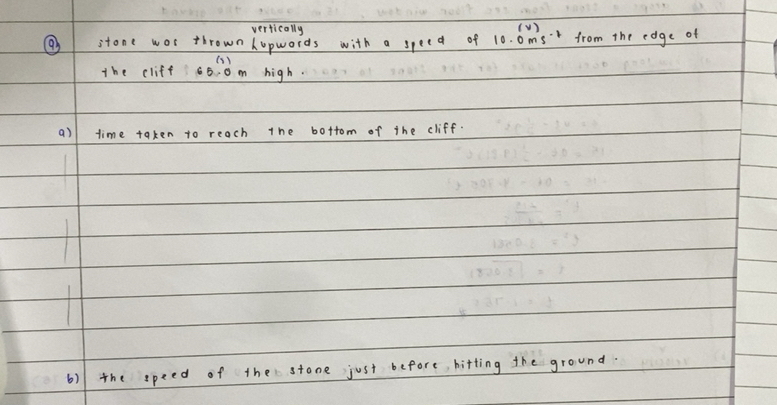 Q) stone was thrown vertically upwards with a speed of 10.0 ms⁻¹ (v) from the edge of
the cliff 65.0 m (s) high.
a) time taken to reach the bottom of the cliff.
b) the speed of the stone just before hitting the ground.